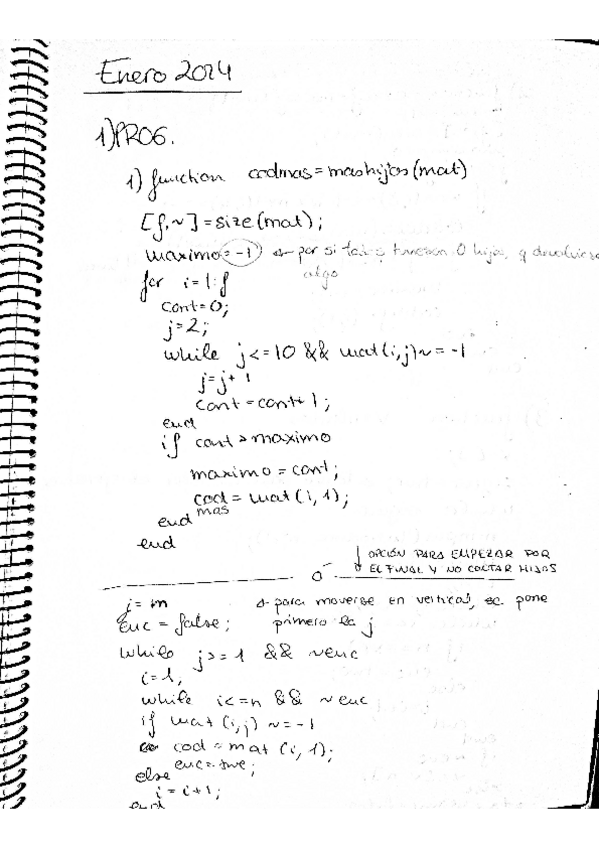 Enero 2024
1) PROG.
1) function codmas = mashijos (mat)
[f,~] = size (mat);
maximo = -1 por si todos tuvieran 0 hijos, q devolviese
algo
for i = 1:f
cont = 0;
j = 2;
while j <= 10 && mat(i,j) ~= -1
j = j + 1
cont = cont + 1;
end
if cont > maximo
maximo = cont;
cod = mat (i, 1);
mas
end
end
OPCIÓN PARA EMPEZAR POR
EL FINAL Y NO CONTAR HIJOS
o
j = m para moverse en vertical, se pone
enc = false; primero la j
while j >= 1 && ~enc
i = 1;
while i <= n && ~enc
if mat (i,j) ~= -1
cod = mat (i, 1);
enc = true;
else
i = i + 1;
end